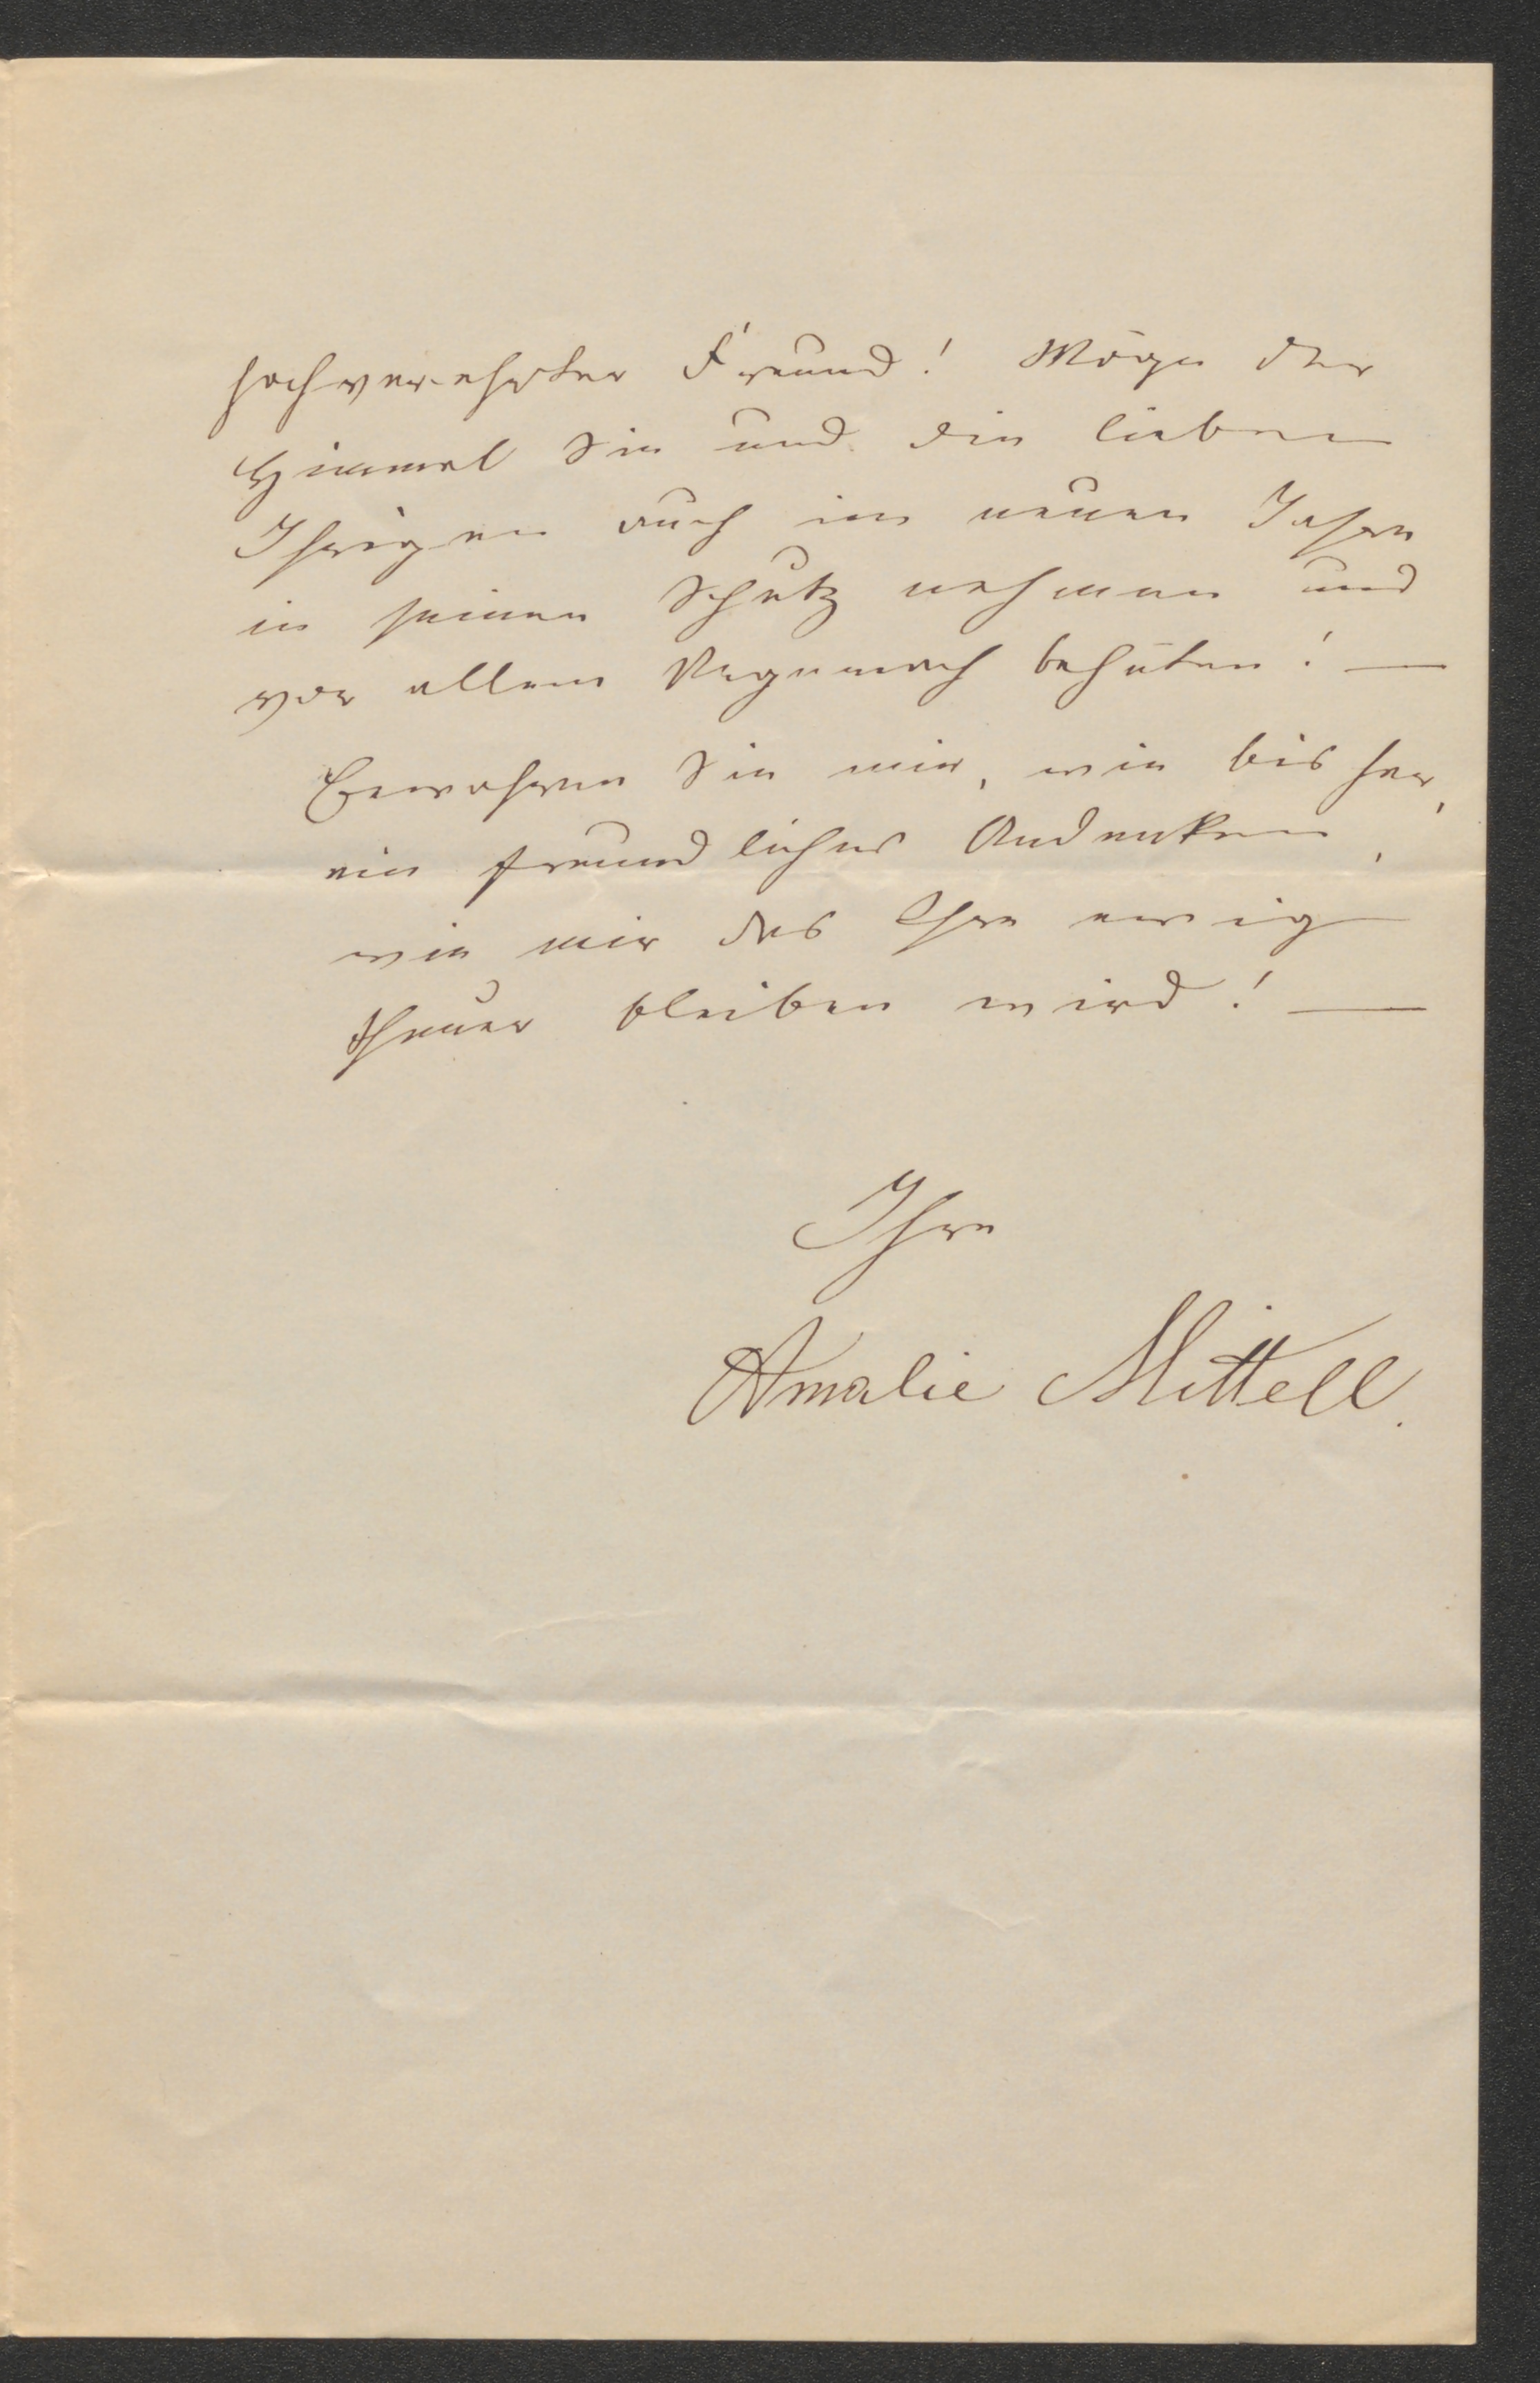 hochverehrter Freund! Möge der
Himmel Sie und die lieben
Ihrigen auch im neuen Jahre
in seinen Schutz nehmen und
vor allem Ungemach behüten! —
Bewahren Sie mir, wie bisher,
ein freundliches Andenken,
wie mir das Ihre ewig
theuer bleiben wird! —
Ihre
Amalie Mittell.